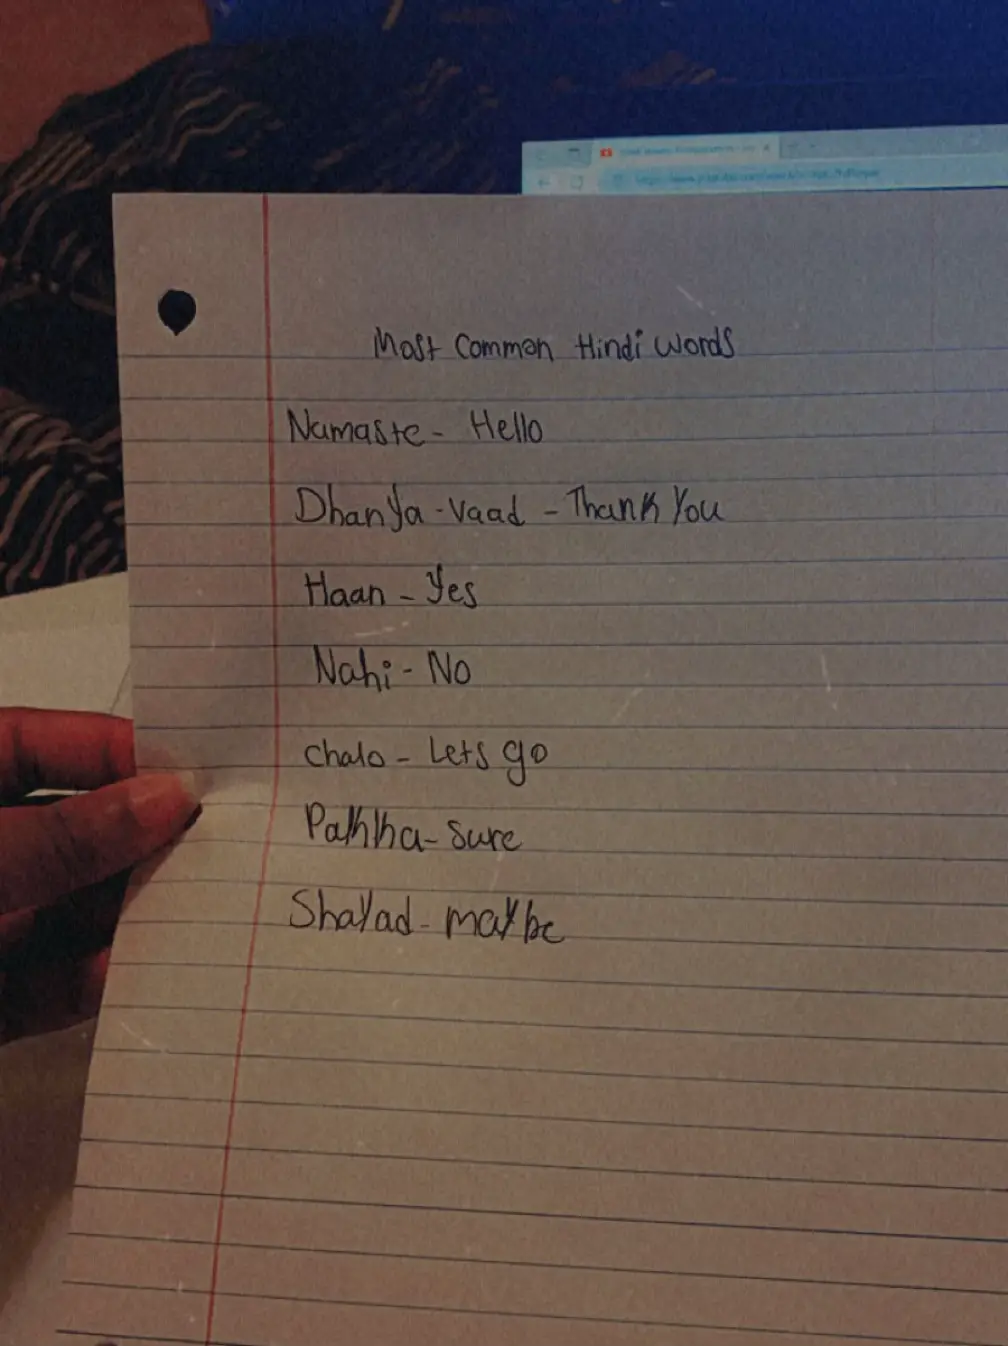 Most Common Hindi Words
Namaste - Hello
Dhanya-vaad - Thank You
Haan - Yes
Nahi - No
chalo - Lets go
Pakkha - Sure
Shayad - maybe